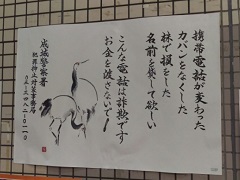 携帯電話が変わった
カバンをなくした
株で損をした
名前を貸して欲しい
こんな電話は詐欺です
お金を渡さないで!
成城警察署